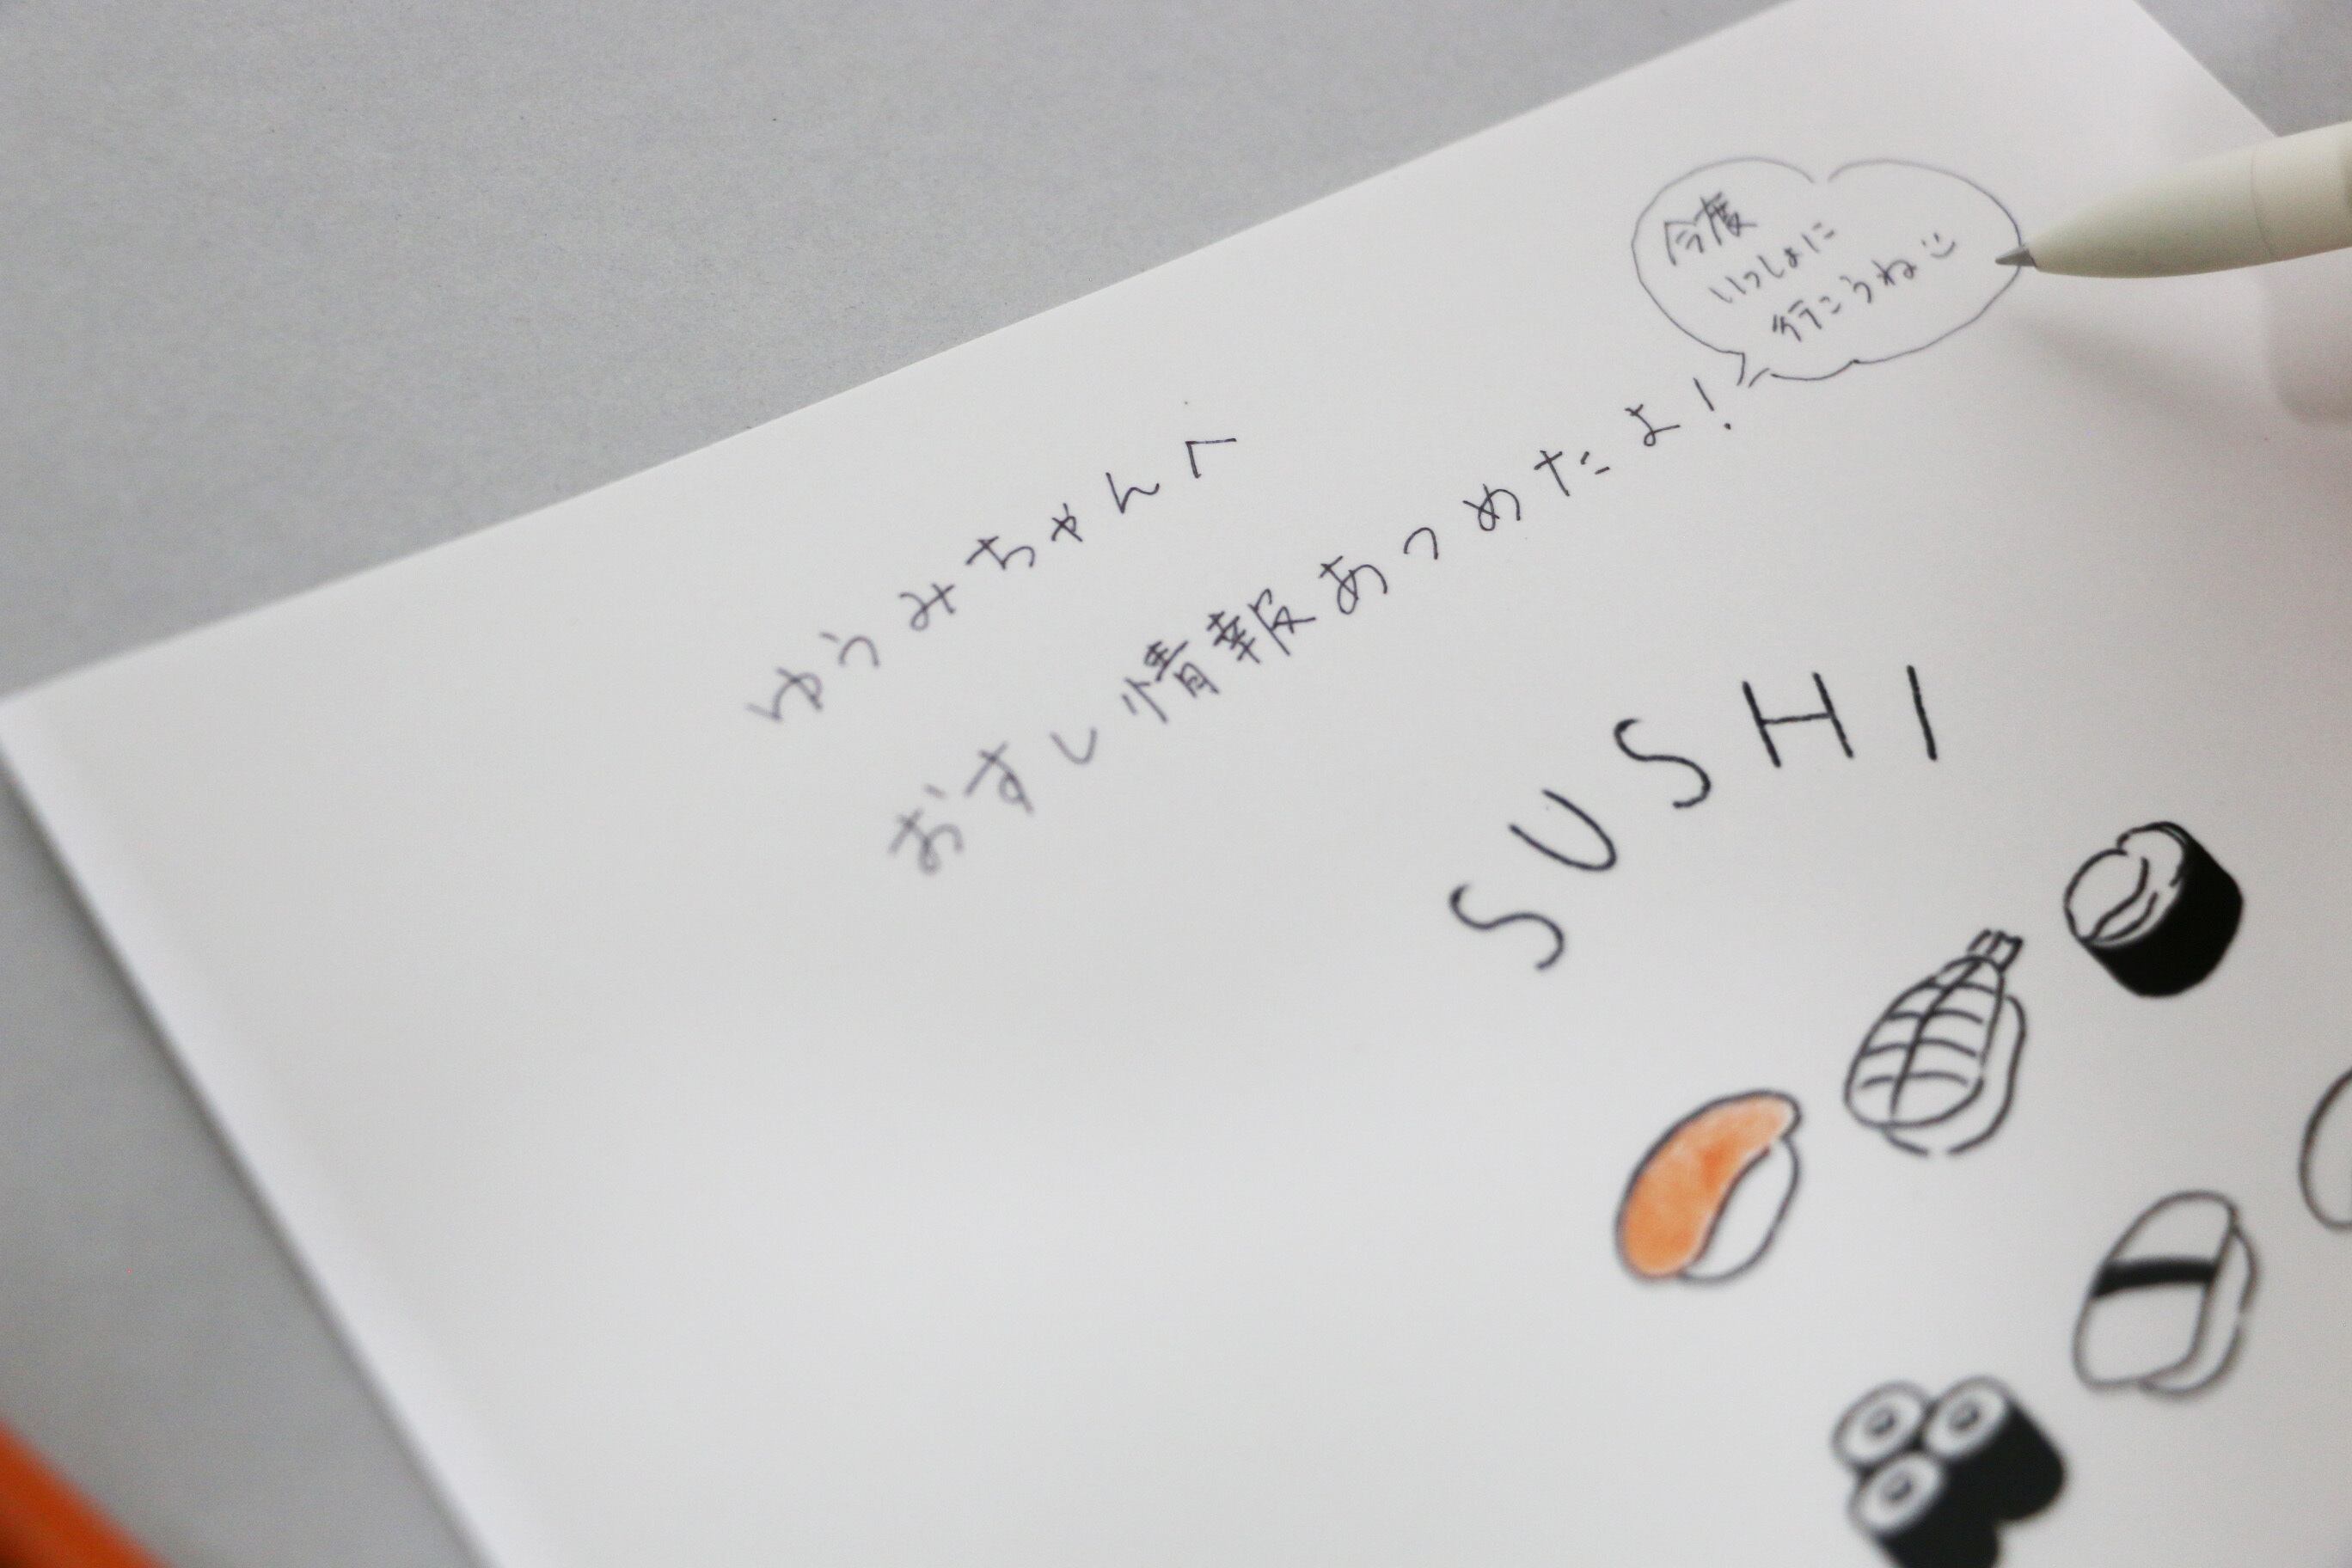 ゆうみちゃんへ
おすし情報あつめたよ!
今度
いっしょに
行こうね
SUSHI